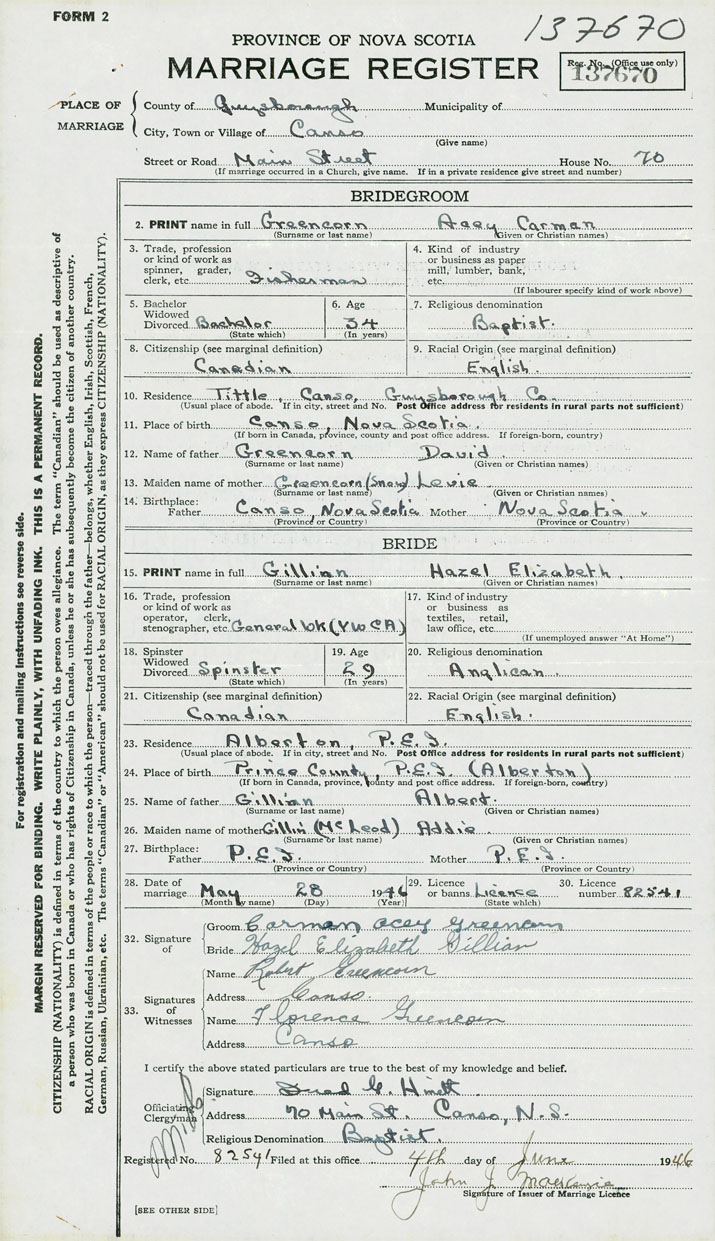 FORM 2
137670
PROVINCE OF NOVA SCOTIA
MARRIAGE REGISTER
Reg. No. (Office use only)
137670
PLACE OF MARRIAGE
County of Guysborough Municipality of
City, Town or Village of Canso
(Give name)
Street or Road Main Street House No. 70
(If marriage occurred in a Church, give name. If in a private residence give street and number)
BRIDEGROOM
2. PRINT name in full Greencorn Acey Carman
(Surname or last name) (Given or Christian names)
3. Trade, profession or kind of work as spinner, grader, clerk, etc. Fisherman
4. Kind of industry or business as paper mill, lumber, bank, etc.
(If labourer specify kind of work above)
5. Bachelor Widowed Divorced Bachelor
(State which)
6. Age 34
(In years)
7. Religious denomination
Baptist.
8. Citizenship (see marginal definition)
Canadian
9. Racial Origin (see marginal definition)
English.
10. Residence Tittle, Canso, Guysborough Co.
(Usual place of abode. If in city, street and No. Post Office address for residents in rural parts not sufficient)
11. Place of birth Canso, Nova Scotia.
(If born in Canada, province, county and post office address. If foreign-born, country)
12. Name of father Greencorn David.
(Surname or last name) (Given or Christian names)
13. Maiden name of mother Greencorn (Snow) Levie
(Surname or last name) (Given or Christian names)
14. Birthplace: Father Canso, Nova Scotia Mother Nova Scotia.
(Province or Country) (Province or Country)
BRIDE
15. PRINT name in full Gillian Hazel Elizabeth.
(Surname or last name) (Given or Christian names)
16. Trade, profession or kind of work as operator, clerk, stenographer, etc. General Wk (YWCA)
17. Kind of industry or business as textiles, retail, law office, etc.
(If unemployed answer "At Home")
18. Spinster Widowed Divorced Spinster
(State which)
19. Age 29
(In years)
20. Religious denomination
Anglican.
21. Citizenship (see marginal definition)
Canadian
22. Racial Origin (see marginal definition)
English.
23. Residence Alberton, P.E.I.
(Usual place of abode. If in city, street and No. Post Office address for residents in rural parts not sufficient)
24. Place of birth Prince County, P.E.I. (Alberton)
(If born in Canada, province, county and post office address. If foreign-born, country)
25. Name of father Gillian Albert.
(Surname or last name) (Given or Christian names)
26. Maiden name of mother Gillin (McLeod) Addie
(Surname or last name) (Given or Christian names)
27. Birthplace: Father P.E.I. Mother P.E.I.
(Province or Country) (Province or Country)
28. Date of marriage May 28 1946
(Month by name) (Day) (Year)
29. Licence or banns Licence
(State which)
30. Licence number 82541
32. Signature of
Groom Carman Acey Greencorn
Bride Hazel Elizabeth Gillian
33. Signatures of Witnesses
Name Robert Greencorn
Address Canso.
Name Florence Greencorn
Address Canso
I certify the above stated particulars are true to the best of my knowledge and belief.
Officiating Clergyman
Signature
Address 70 Main St. Canso, N.S.
Religious Denomination Baptist.
Registered No. 82541 Filed at this office 4th day of June 1946
John J.
Signature of Issuer of Marriage Licence
[SEE OTHER SIDE]
For registration and mailing instructions see reverse side.
MARGIN RESERVED FOR BINDING. WRITE PLAINLY, WITH UNFADING INK. THIS IS A PERMANENT RECORD.
CITIZENSHIP (NATIONALITY) is defined in terms of the country to which the person owes allegiance. The term "Canadian" should be used as descriptive of
a person who was born in Canada or who has rights of Citizenship in Canada, unless he or she has subsequently become the citizen of another country.
RACIAL ORIGIN is defined in terms of the people or race to which the person—traced through the father—belongs, whether English, Irish, Scottish, French,
German, Russian, Ukrainian, etc. The terms "Canadian" or "American" should not be used for RACIAL ORIGIN, as they express CITIZENSHIP (NATIONALITY).